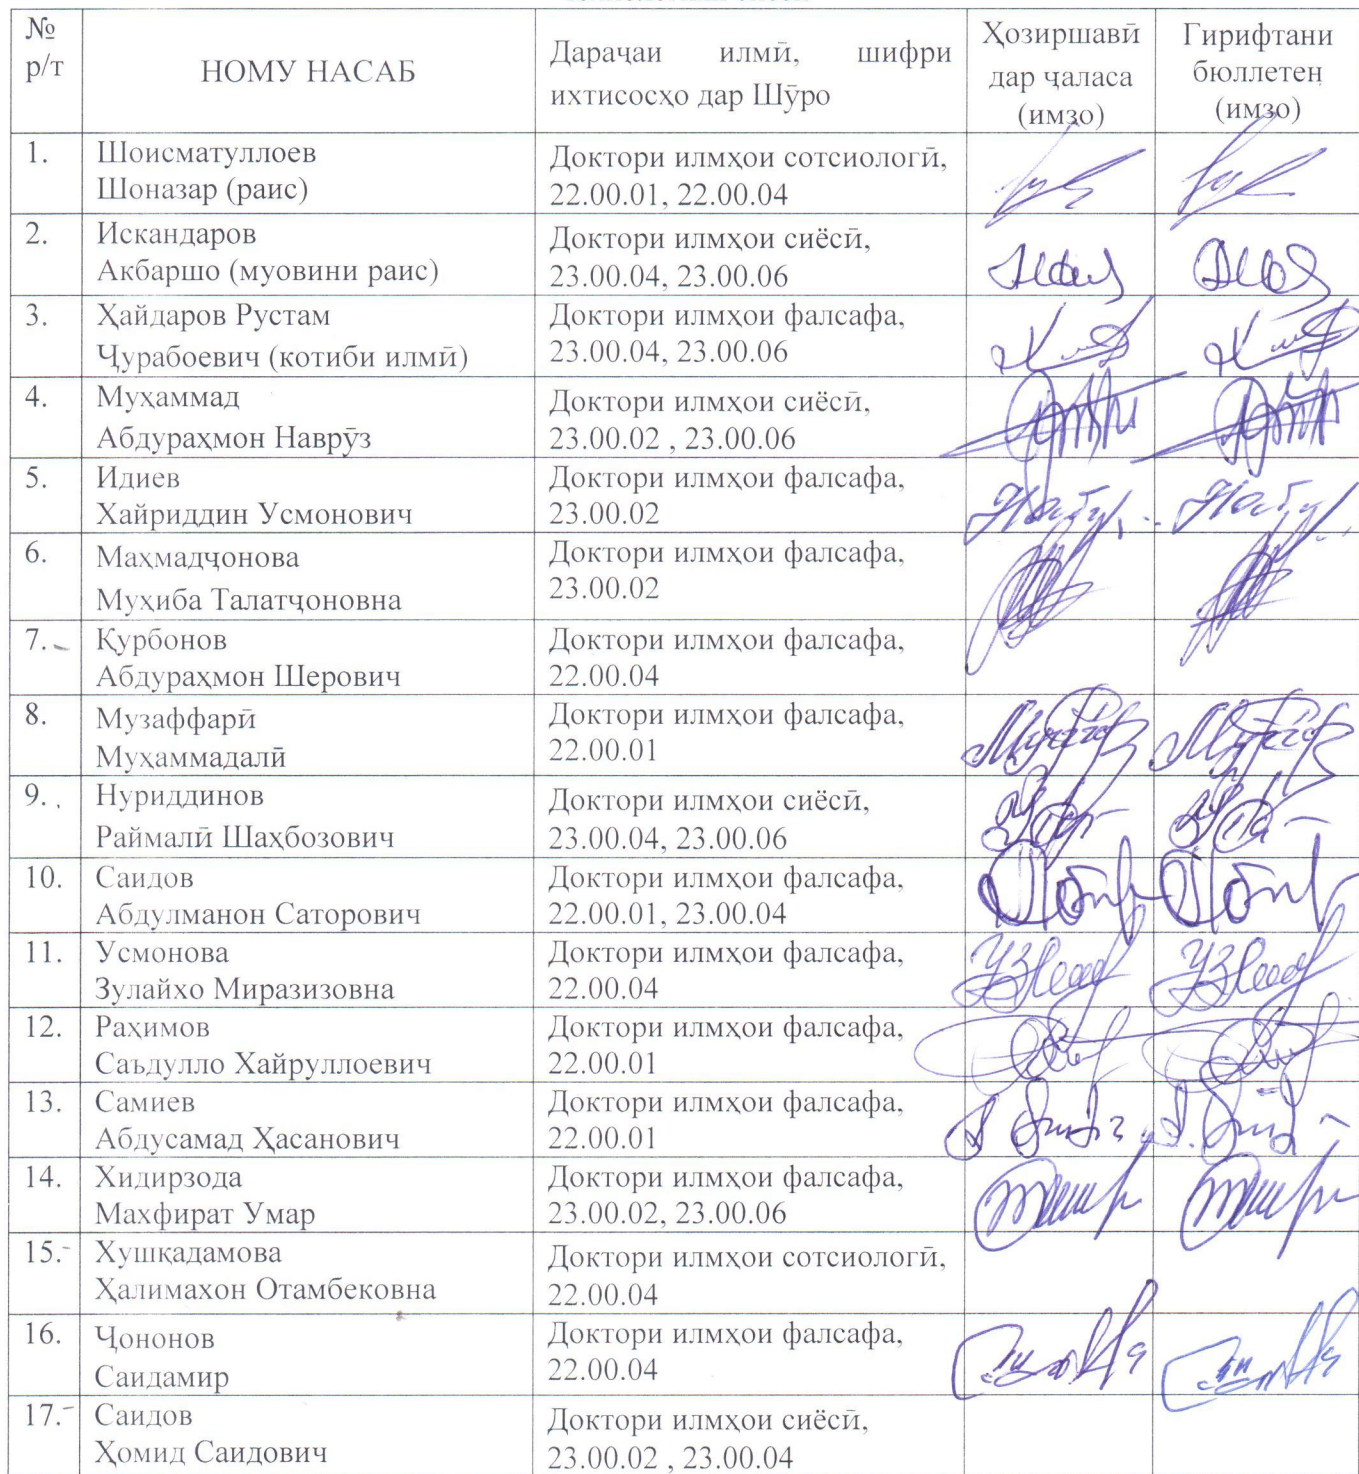 №
р/т
НОМУ НАСАБ
Дараҷаи илмӣ, шифри
ихтисосҳо дар Шӯро
Ҳозиршавӣ
дар ҷаласа
(имзо)
Гирифтани
бюллетен
(имзо)
1.
Шоисматуллоев
Шоназар (раис)
Доктори илмҳои сотсиологӣ,
22.00.01, 22.00.04
2.
Искандаров
Акбаршо (муовини раис)
Доктори илмҳои сиёсӣ,
23.00.04, 23.00.06
3.
Ҳайдаров Рустам
Ҷурабоевич (котиби илмӣ)
Доктори илмҳои фалсафа,
23.00.04, 23.00.06
4.
Муҳаммад
Абдураҳмон Наврӯз
Доктори илмҳои сиёсӣ,
23.00.02 , 23.00.06
5.
Идиев
Хайриддин Усмонович
Доктори илмҳои фалсафа,
23.00.02
6.
Маҳмадҷонова
Муҳиба Талатҷоновна
Доктори илмҳои фалсафа,
23.00.02
7.
Қурбонов
Абдураҳмон Шерович
Доктори илмҳои фалсафа,
22.00.04
8.
Музаффарӣ
Муҳаммадалӣ
Доктори илмҳои фалсафа,
22.00.01
9.
Нуриддинов
Раймалӣ Шаҳбозович
Доктори илмҳои сиёсӣ,
23.00.04, 23.00.06
10.
Саидов
Абдулманон Саторович
Доктори илмҳои фалсафа,
22.00.01, 23.00.04
11.
Усмонова
Зулайхо Миразизовна
Доктори илмҳои фалсафа,
22.00.04
12.
Раҳимов
Саъдулло Хайруллоевич
Доктори илмҳои фалсафа,
22.00.01
13.
Самиев
Абдусамад Ҳасанович
Доктори илмҳои фалсафа,
22.00.01
14.
Хидирзода
Махфират Умар
Доктори илмҳои фалсафа,
23.00.02, 23.00.06
15.
Хушқадамова
Ҳалимахон Отамбековна
Доктори илмҳои сотсиологӣ,
22.00.04
16.
Ҷононов
Саидамир
Доктори илмҳои фалсафа,
22.00.04
17.
Саидов
Ҳомид Саидович
Доктори илмҳои сиёсӣ,
23.00.02 , 23.00.04